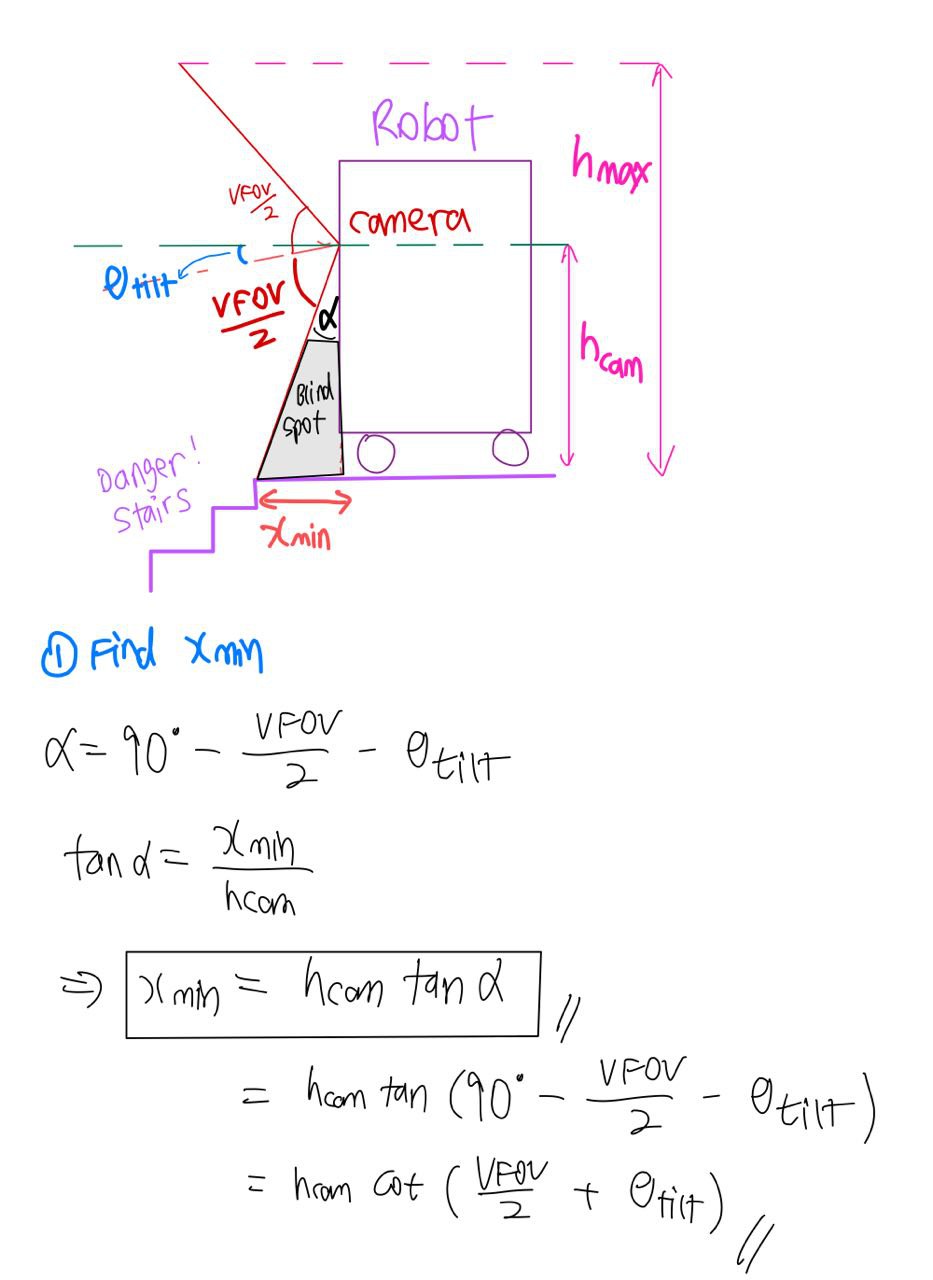 Robot
hmax
VFOV/2
camera
θtilt
VFOV/2
α
hcam
Blind
spot
Danger!
Stairs
xmin
① Find xmin
α = 90° - VFOV/2 - θtilt
tan α = xmin/hcam
⇒ xmin = hcam tan α //
= hcam tan (90° - VFOV/2 - θtilt)
= hcam cot (VFOV/2 + θtilt) //